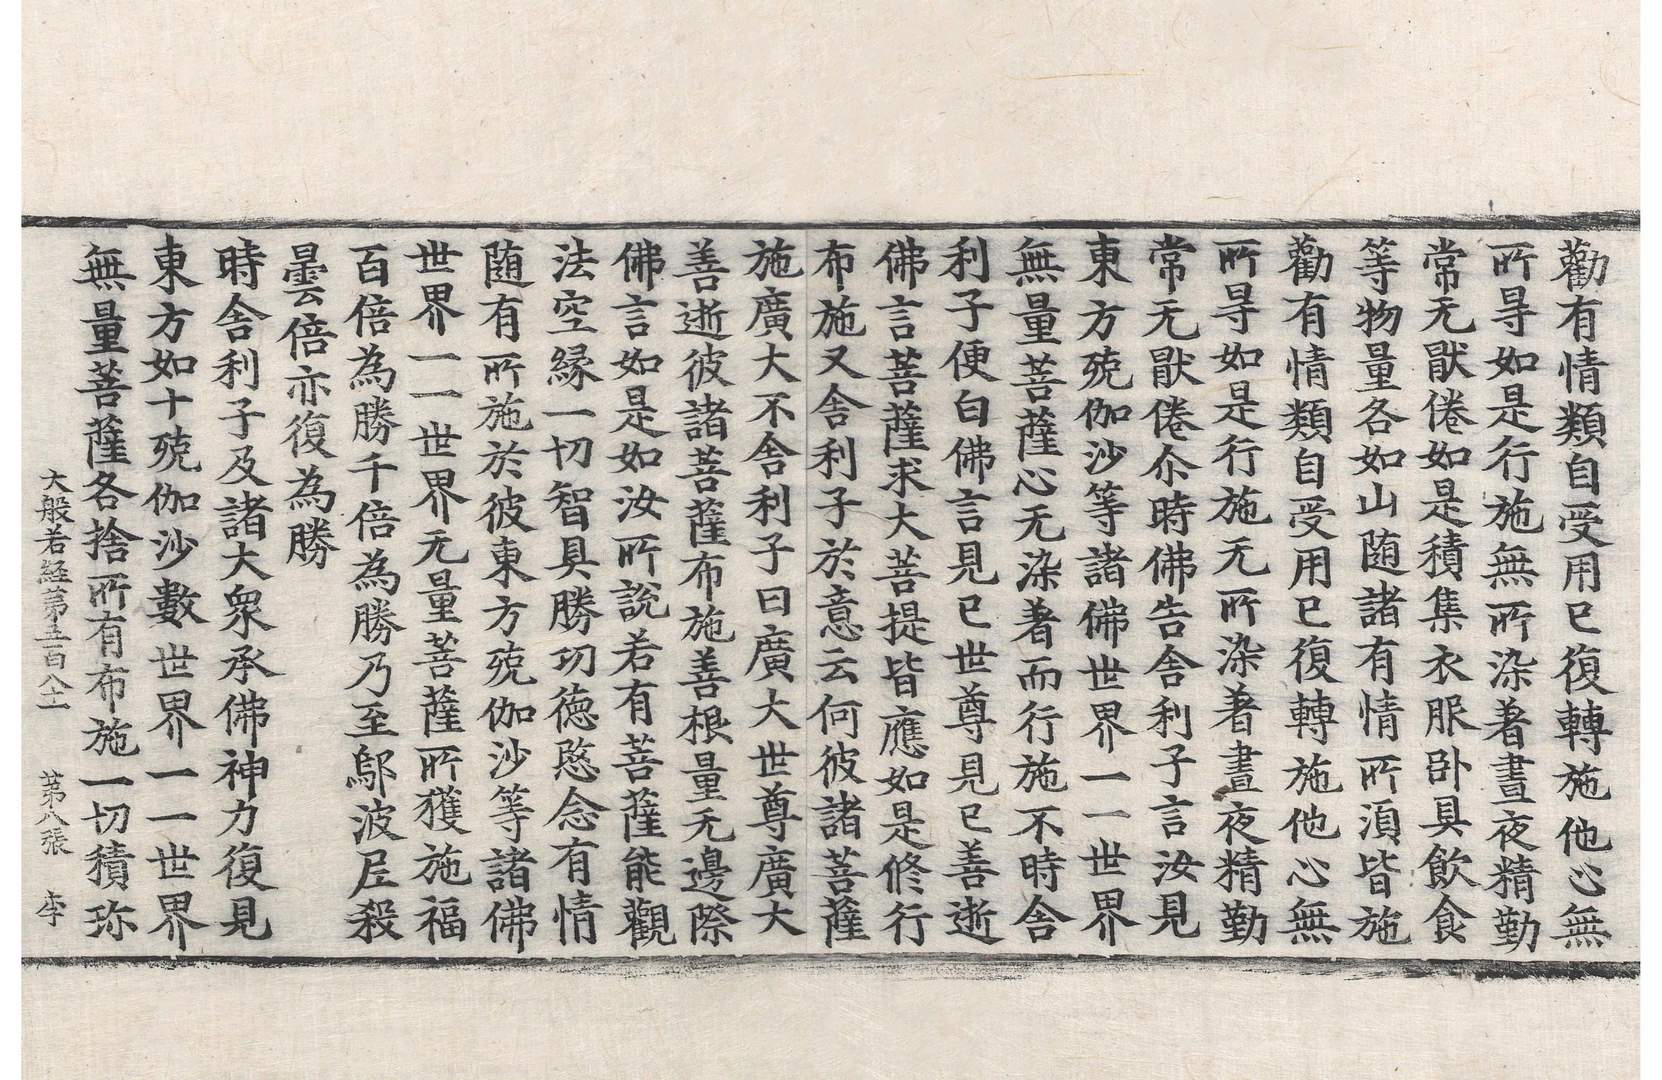 勸有情類自受用已復轉施他心無
所㝵如是行施無所染著晝夜精勤
常无猒倦如是積集衣服卧具飲食
等物量各如山随諸有情所湏皆施
勸有情類自受用已復轉施他心無
所㝵如是行施无所染著晝夜精勤
常无猒倦尒時佛告舍利子言汝見
東方殑伽沙等諸佛世界一一世界
無量菩薩心无染著而行施不時舍
利子便白佛言見已世尊見已善逝
佛言菩薩求大菩提皆應如是修行
布施又舍利子於意云何彼諸菩薩
施廣大不舍利子曰廣大世尊廣大
善逝彼諸菩薩布施善根量无邊際
佛言如是如汝所說若有菩薩能觀
法空緣一切智具勝㓛德愍念有情
随有所施於彼東方殑伽沙等諸佛
世界一一世界无量菩薩所獲施福
百倍為勝千倍為勝乃至鄔波尼殺
曇倍亦復為勝
時舍利子及諸大衆承佛神力復見
東方如十殑伽沙數世界一一世界
無量菩薩各捨所有布施一切積珎
大般若経第五百八十一　第八張　李